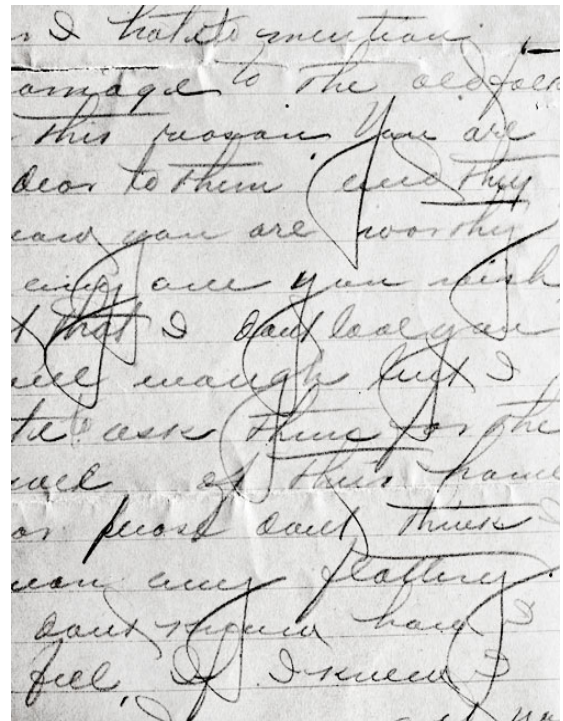 I hate to mention
to the old folk
this reason You are
dear to them and they
you are worthy
any one you wish
t that I dont love you
well enough but I
te ask them for the
of their home
or pleas dont think I
mean any flattery
dont know how I
feel, If I knew I